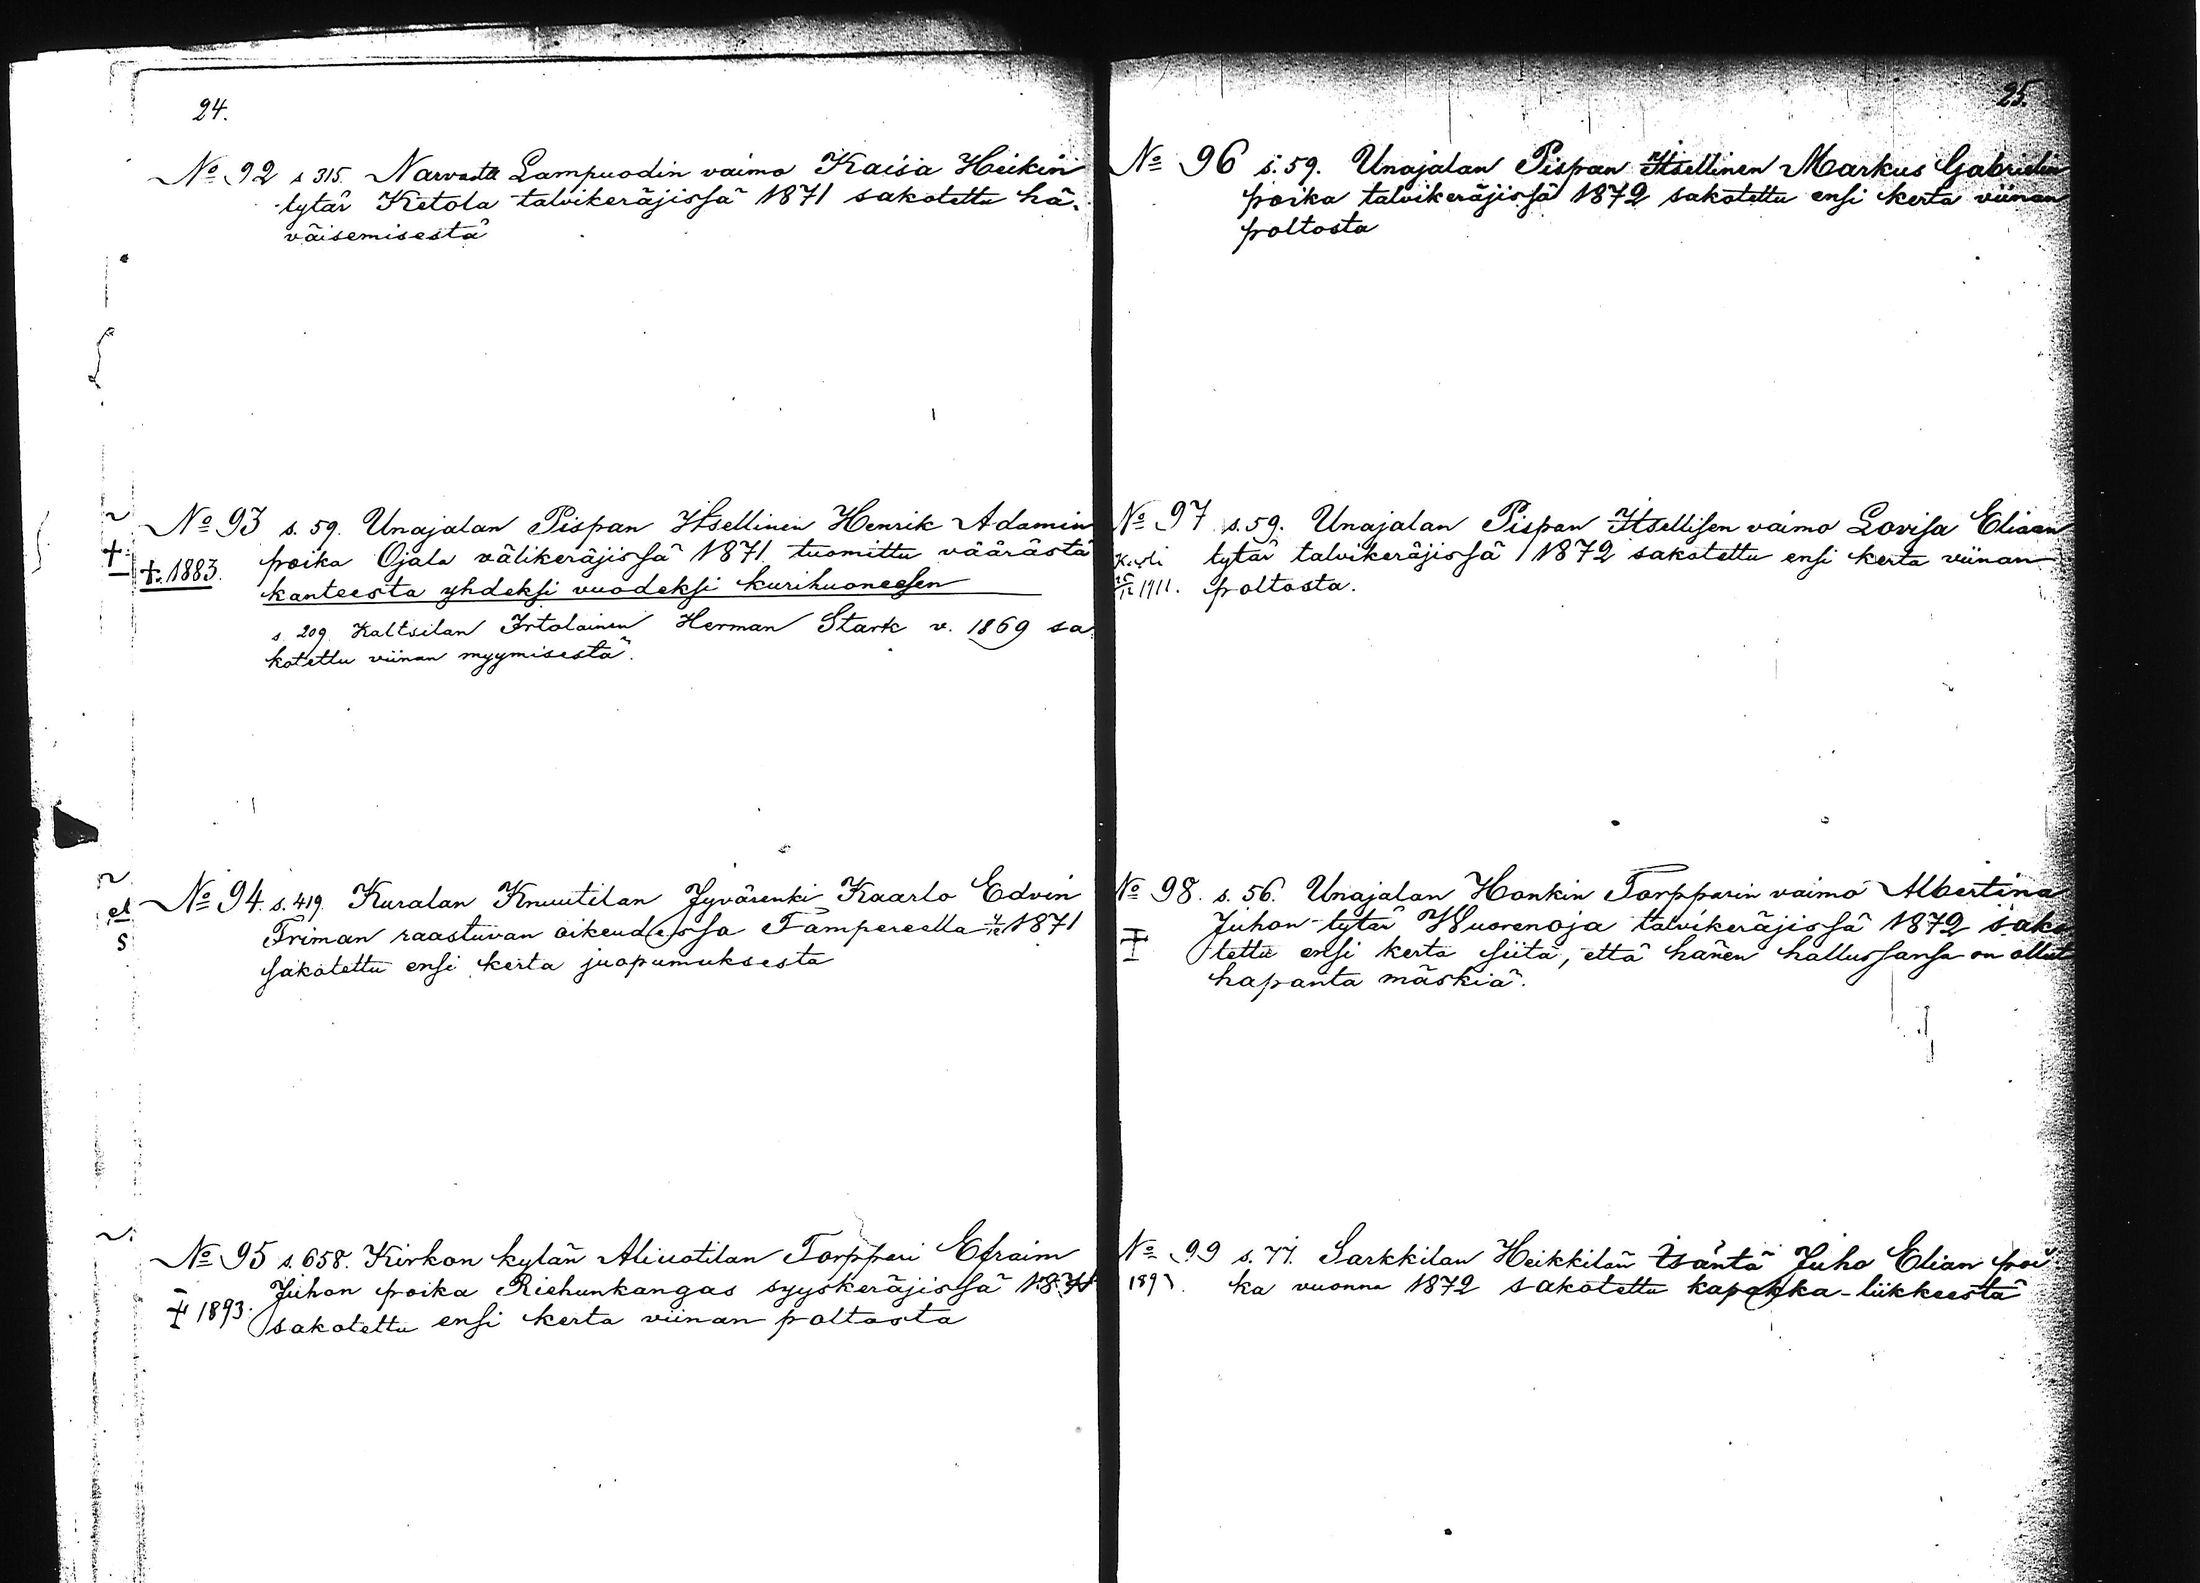 24.
No 92 s 315. Narvasta Lampuodin vaimo Kaisa Heikin
tytär Ketola talvikeräjissä 1871 sakotettu hä-
väisemisestä
No 93 s. 59. Unajalan Pispan Itsellinen Henrik Adamin
poika Ojala välikeräjissä 1871 tuomittu väärästä
+ 1883.
kanteesta yhdeksi vuodeksi kurihuoneesen
s. 209. Kaltsilan Irtolainen Herman Stark v. 1869 sa
kotettu viinan myymisestä.
No 94. s. 419. Kuralan Knuutilan Jyvärenki Kaarlo Edvin
Friman raastuvan oikeudessa Tampereella 1871
sakotettu ensi kerta juopumuksesta
No 95 s. 658. Kirkon kylän Aliuotilan Torppari Efraim
Juhon poika Riehunkangas syyskeräjissä 1871
+ 1893.
sakotettu ensi kerta viinan poltosta
25.
No 96 s. 59. Unajalan Pispan Itsellinen Markus Gabrielin
poika talvikeräjissä 1872 sakotettu ensi kerta viinan
poltosta
No 97 s. 59. Unajalan Pispan Itsellisen vaimo Lovisa Eliaan
tytär talvikeräjissä 1872 sakotettu ensi kerta viinan
1911. poltosta.
No 98. s. 56. Unajalan Honkin Torpparin vaimo Albertina
Juhon tytär Wuorenoja talvikeräjissä 1872 sako
tettu ensi kerta siitä, että hänen hallussansa on ollut
hapanta mäskiä.
No 99 s. 77. Sarkkilan Heikkilän isäntä Juho Elian poi
ka vuonna 1872 sakotettu kapakka-liikkeestä